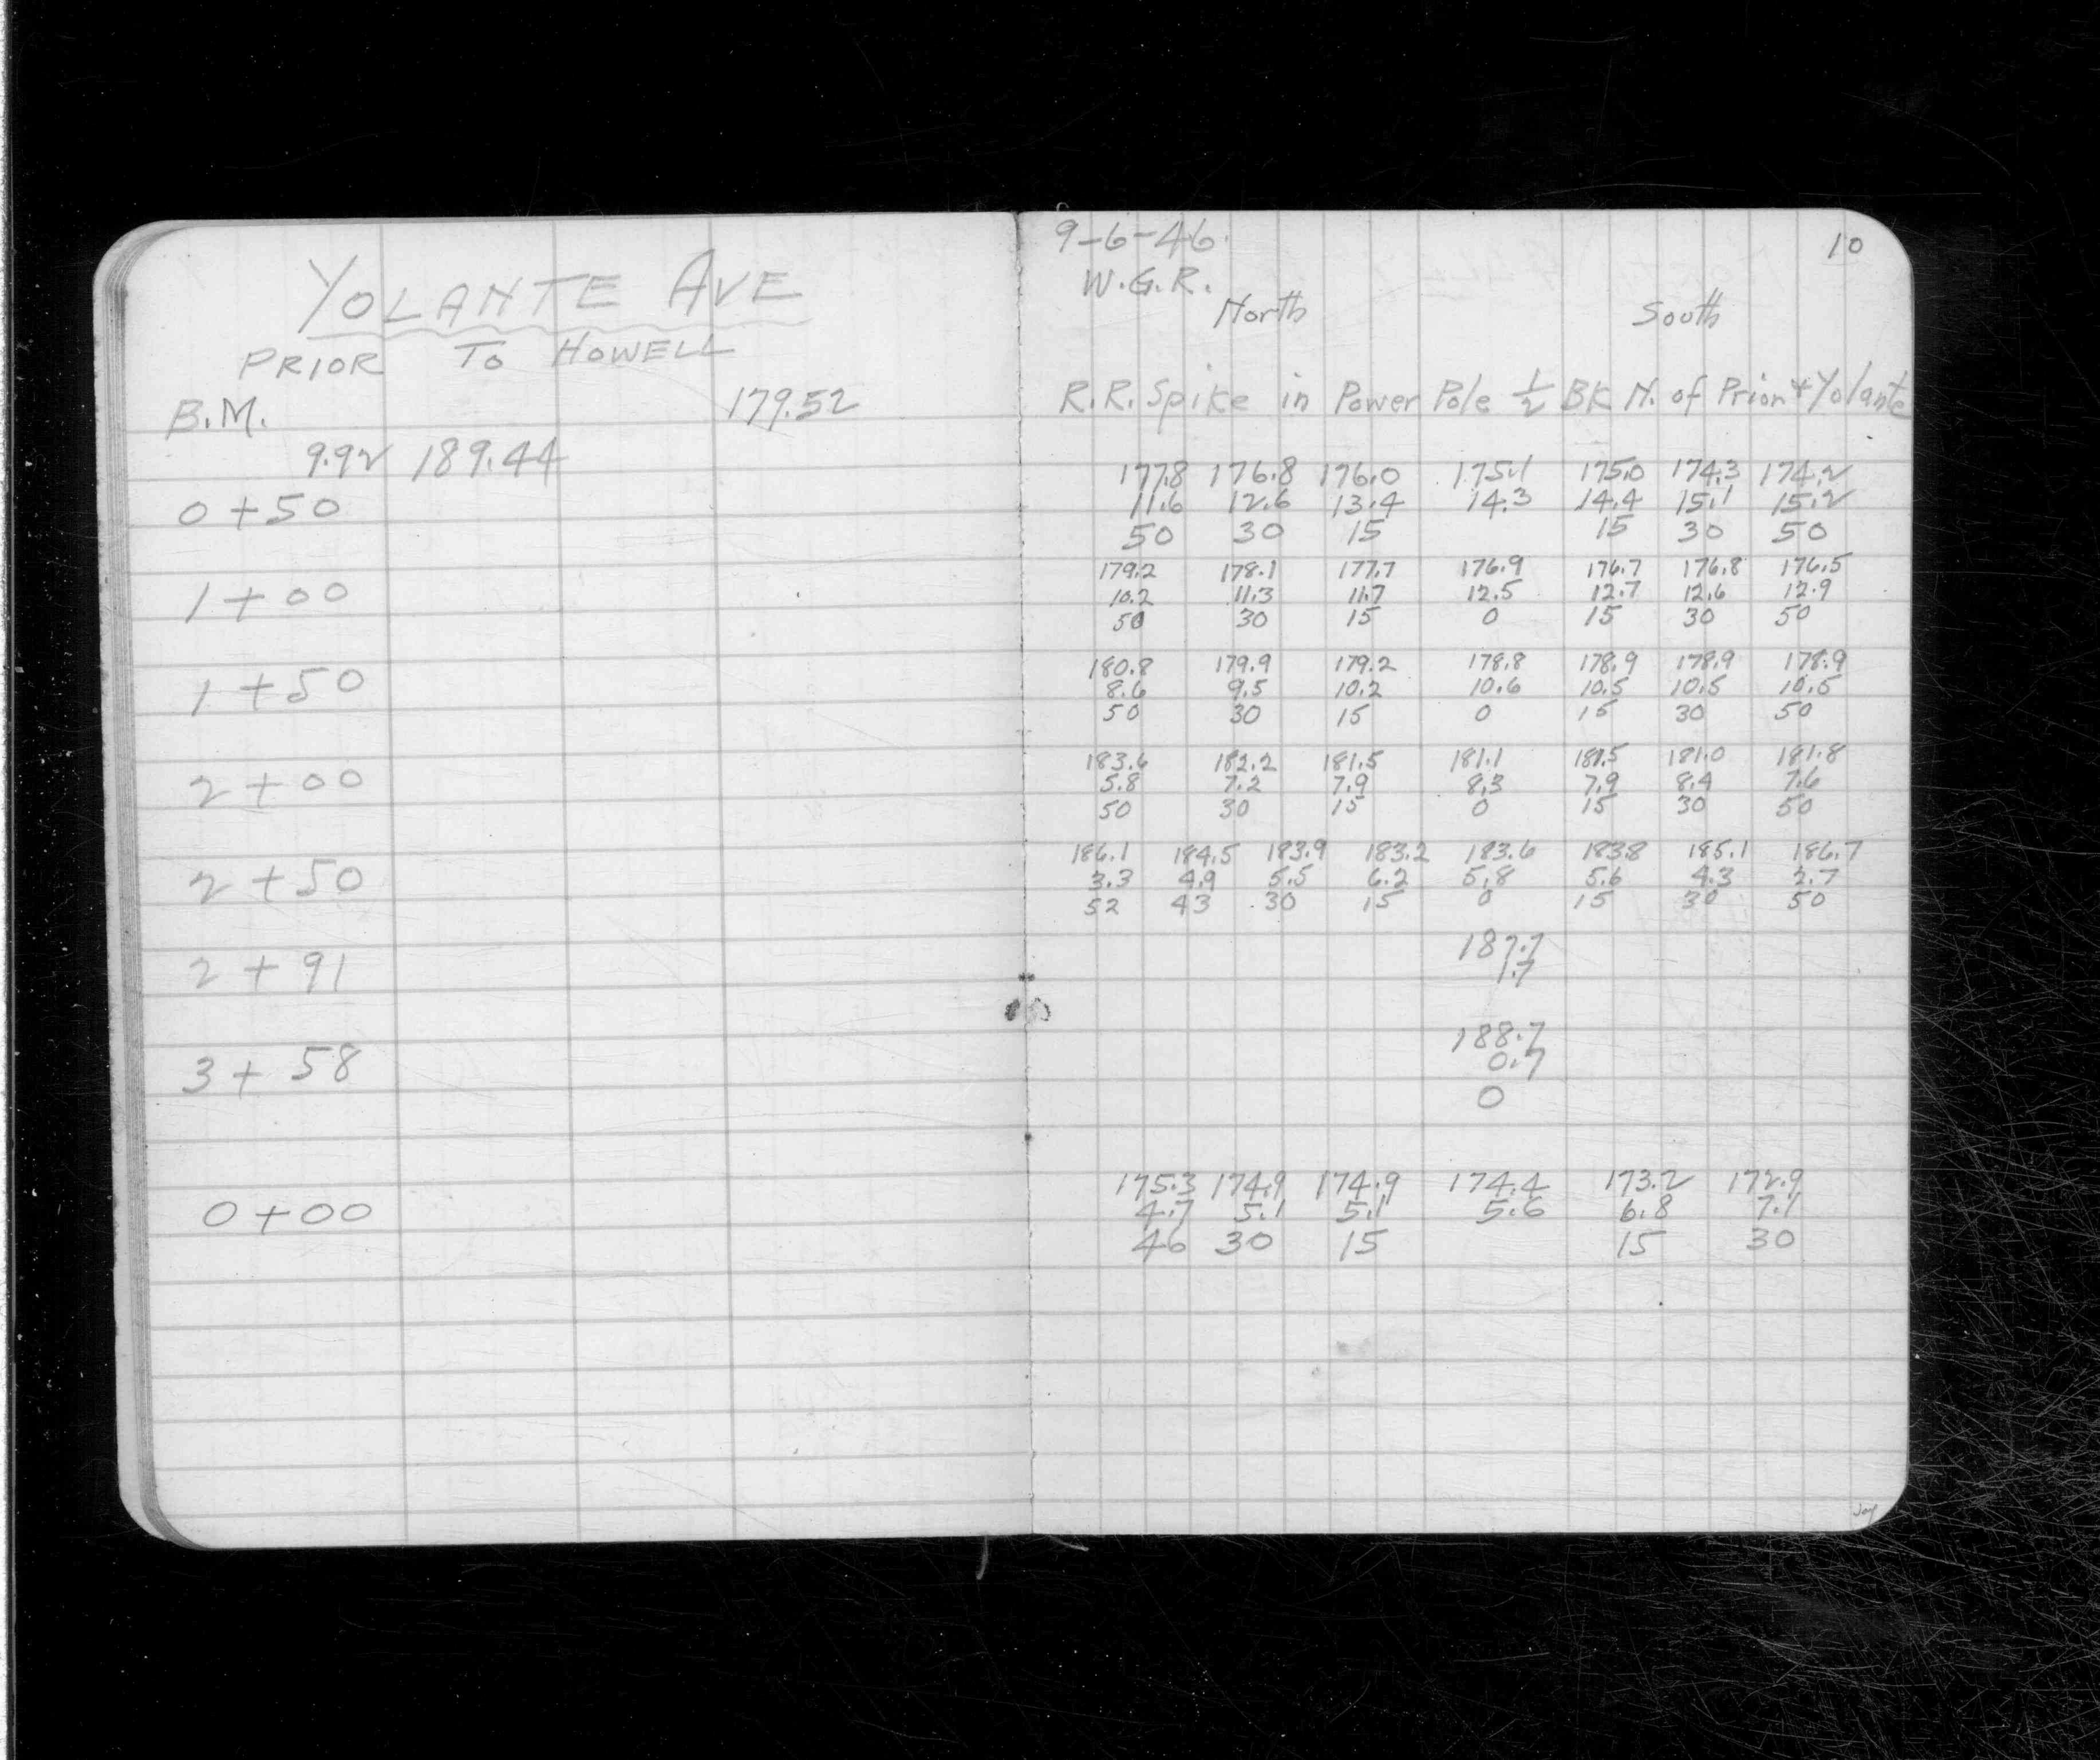 YOLANTE AVE
PRIOR TO HOWELL
B.M. 179.52
9.92 189.44
0+50
1+00
1+50
2+00
2+50
2+91
3+58
0+00
9-6-46
W.G.R.
10
North South
R.R. Spike in Power Pole 1/2 BK N. of Prior + Yolante
177.8 176.8 176.0 175.1 175.0 174.3 174.2
11.6 12.6 13.4 14.3 14.4 15.1 15.2
50 30 15 15 30 50
179.2 178.1 177.7 176.9 176.7 176.8 176.5
10.2 11.3 11.7 12.5 12.7 12.6 12.9
50 30 15 0 15 30 50
180.8 179.9 179.2 178.8 178.9 178.9 178.9
8.6 9.5 10.2 10.6 10.5 10.5 10.5
50 30 15 0 15 30 50
183.6 182.2 181.5 181.1 181.5 181.0 181.8
5.8 7.2 7.9 8.3 7.9 8.4 7.6
50 30 15 0 15 30 50
186.1 184.5 183.9 183.2 183.6 183.8 185.1 186.7
3.3 4.9 5.5 6.2 5.8 5.6 4.3 2.7
52 43 30 15 0 15 30 50
187.7
1.7
188.7
0.7
0
175.3 174.9 174.9 174.4 173.2 172.9
4.7 5.1 5.1 5.6 6.8 7.1
46 30 15 15 30